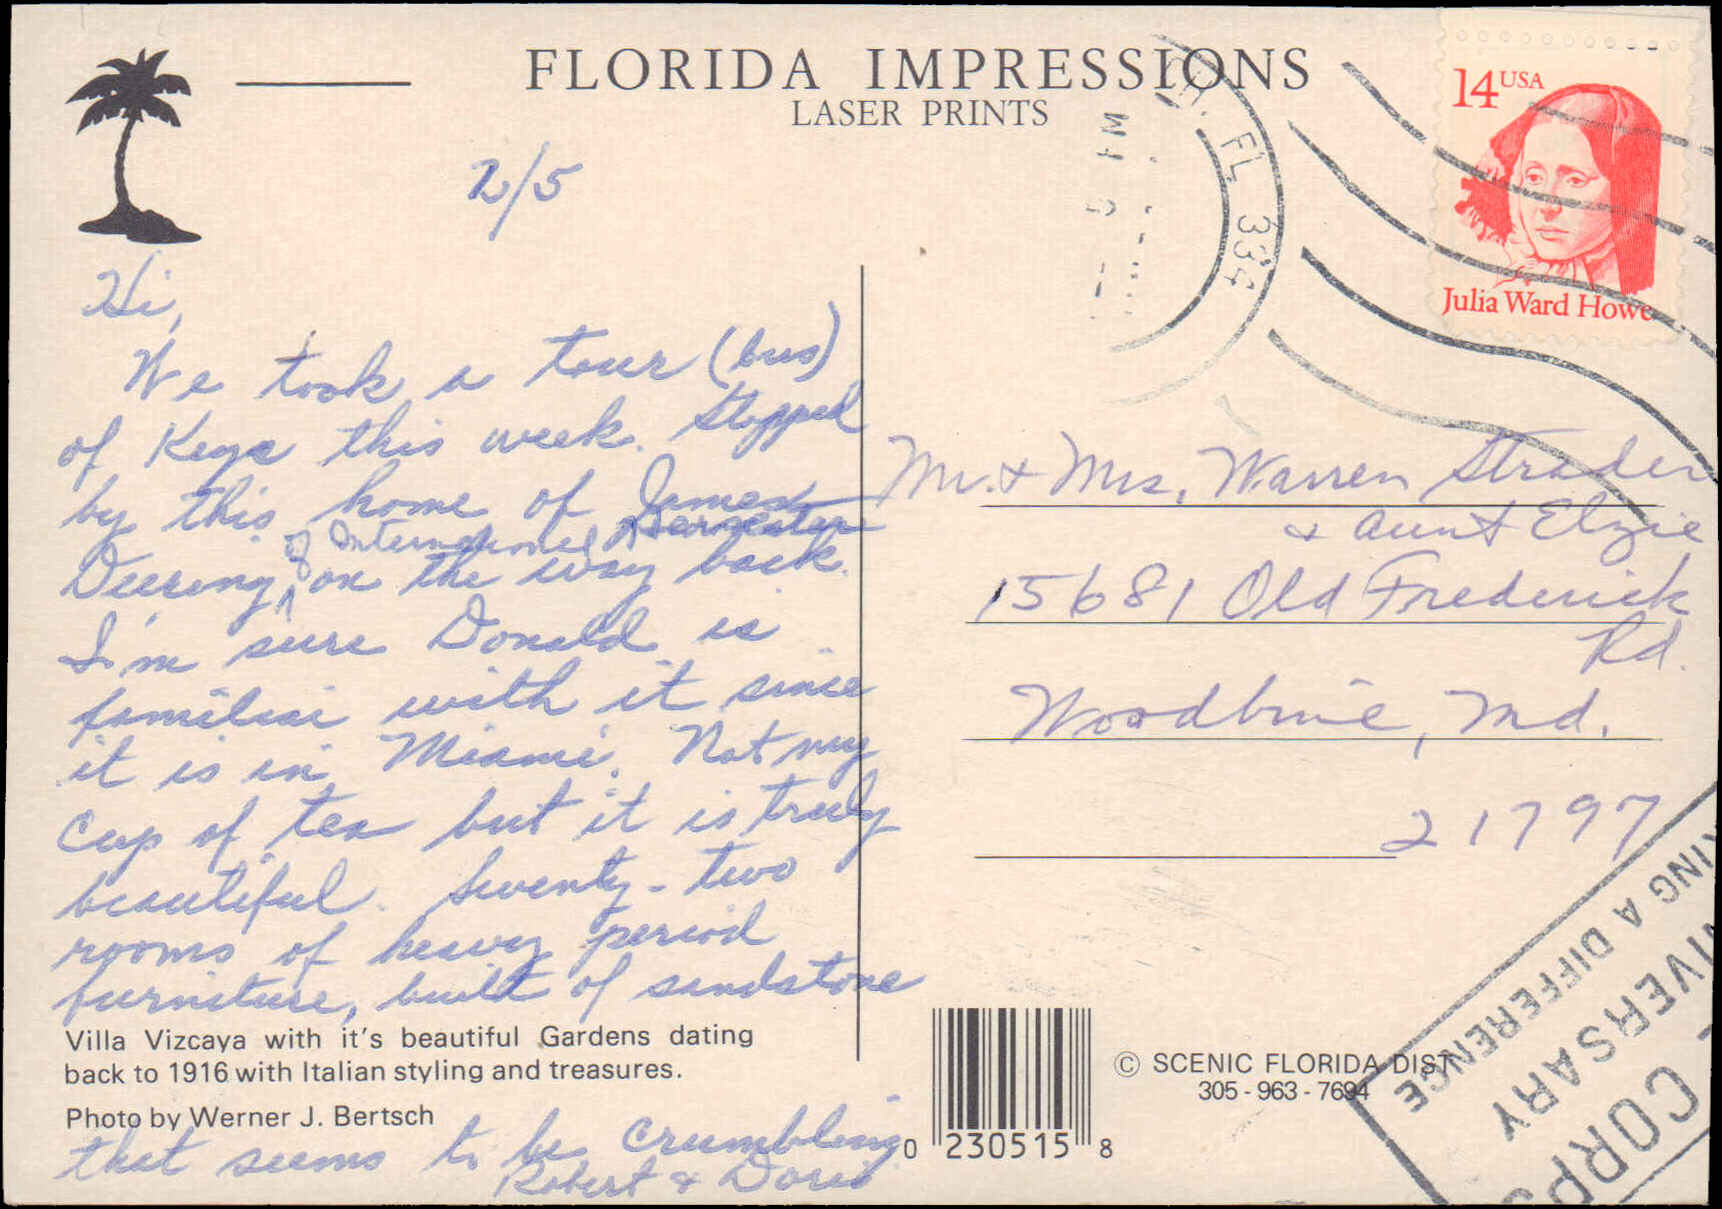 FLORIDA IMPRESSIONS
LASER PRINTS
14 USA
Julia Ward Howe
FL 334
PM
2/5
Hi,
We took a tour (bus)
of Keys this week. Stopped
by this home of James
of International Harvester
Deering, on the way back.
I'm sure Donald is
familiar with it since
it is in Miami. Not my
cup of tea but it is truly
beautiful. Seventy-two
rooms of heavy period
furniture, built of sandstone
Villa Vizcaya with it's beautiful Gardens dating
back to 1916 with Italian styling and treasures.
Photo by Werner J. Bertsch
that seems to be crumbling
Robert & Doris
Mr. & Mrs. Warren Strader
& Aunt Elzie
15681 Old Frederick
Rd.
Woodbine, Md.
21797
© SCENIC FLORIDA DIST
305-963-7694
0 230515 8
KING A DIFFERENCE
IVERSARY
CORPS